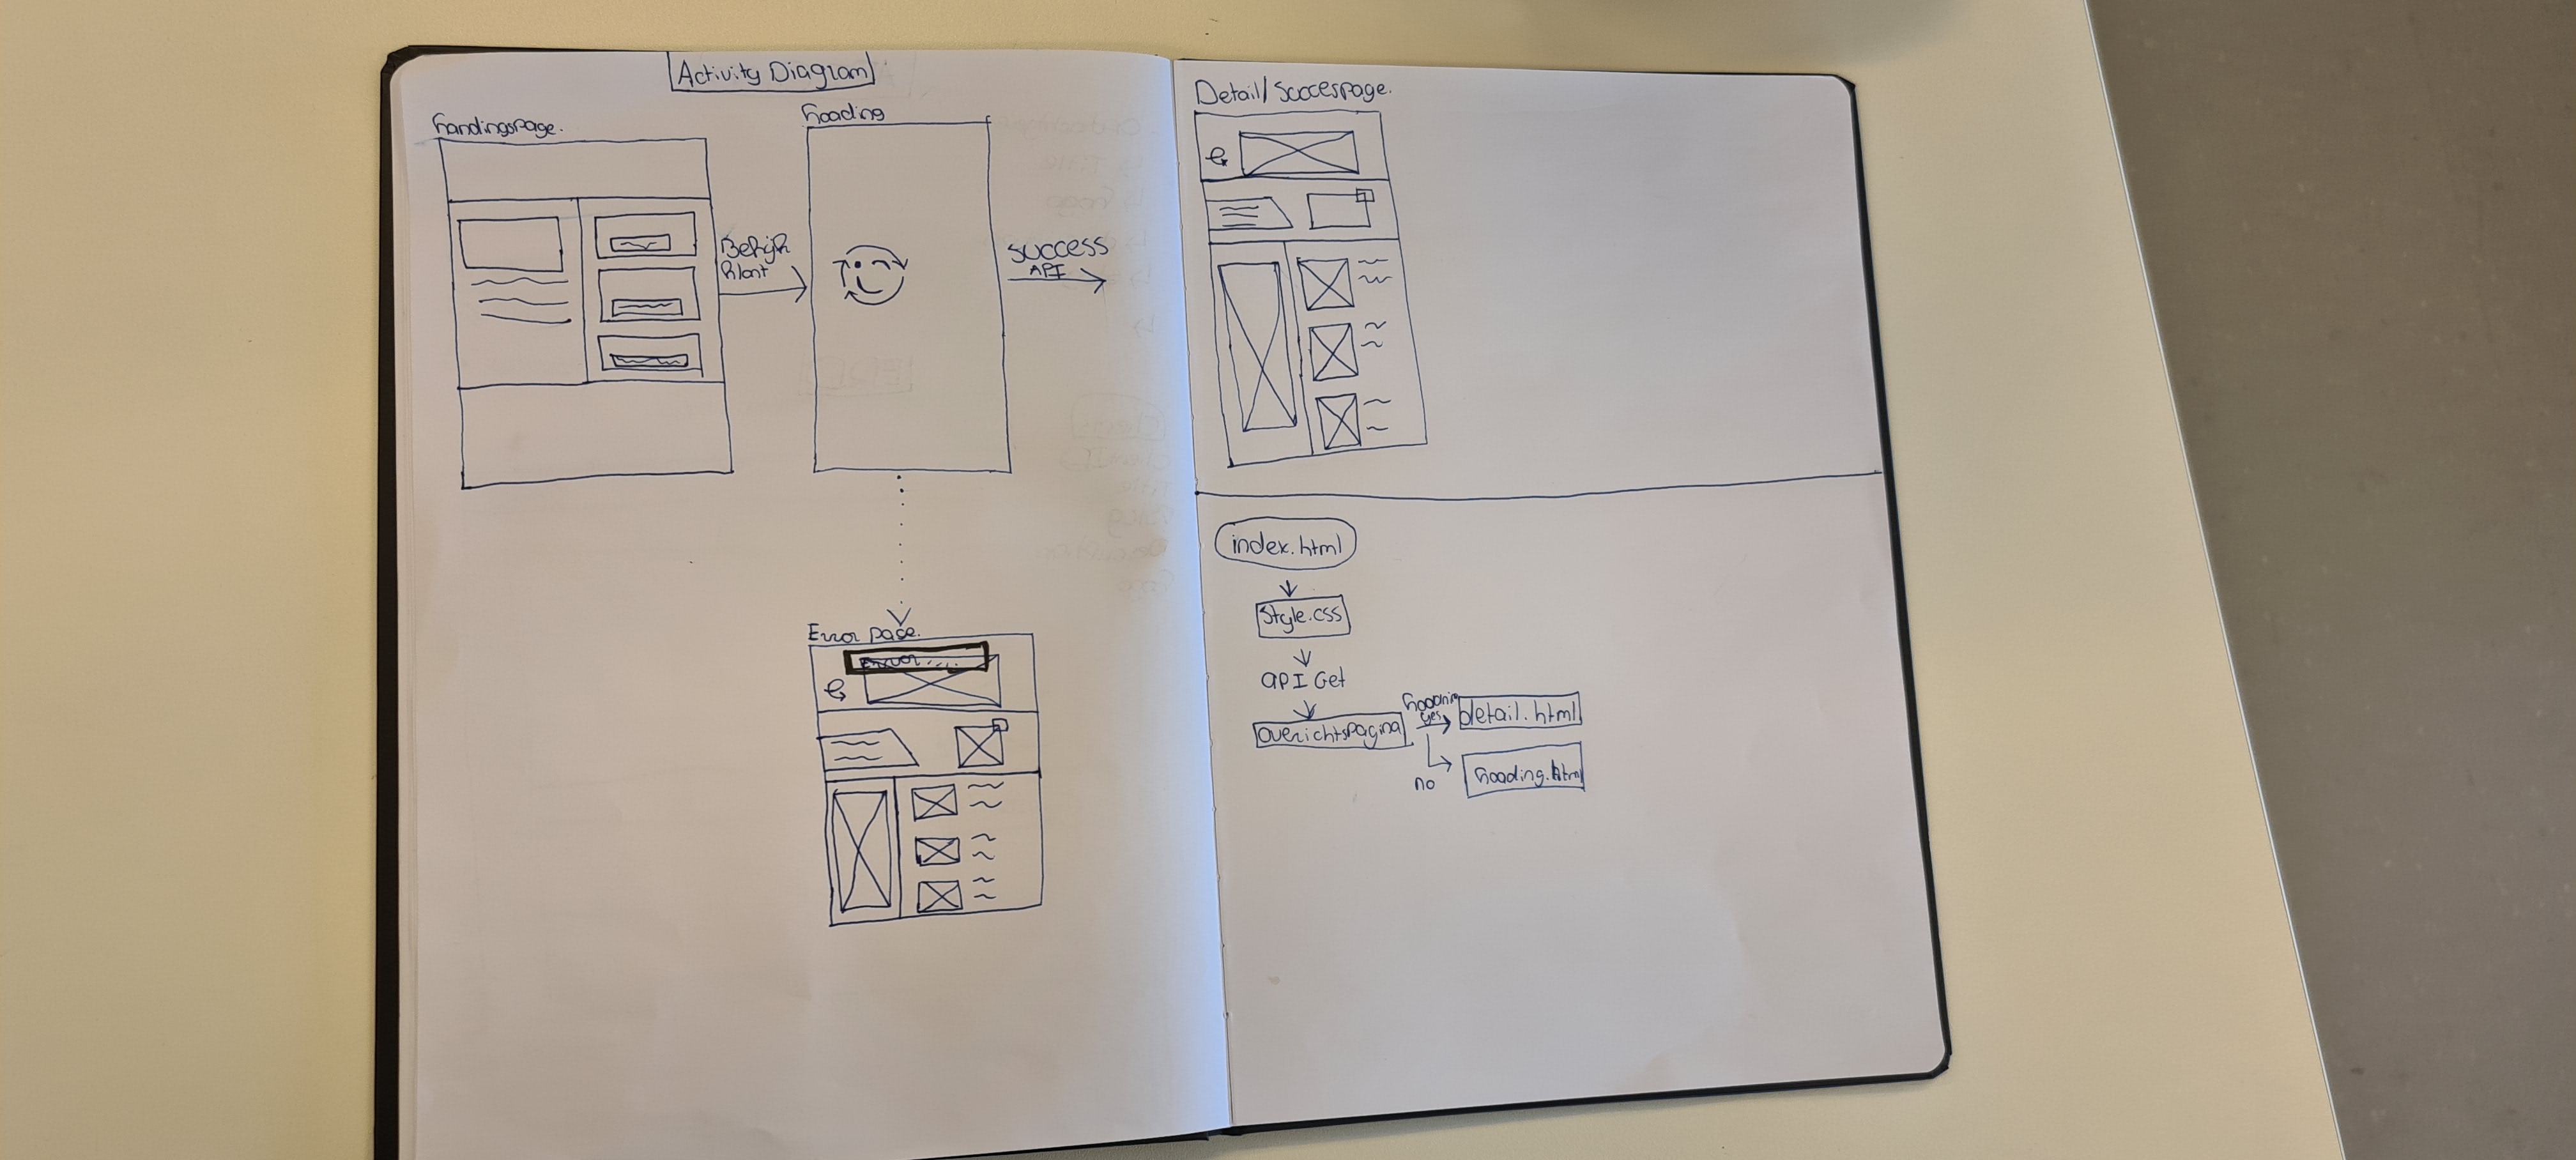 Activity Diagram
Landingspage.
Bekijk
Plant
Loading
SUCCESS
API
Detail/Succespage.
Error page.
Error....
index.html
Style.css
API Get
Overichtspagina
Loading
yes
detail.html
no
Loading.html